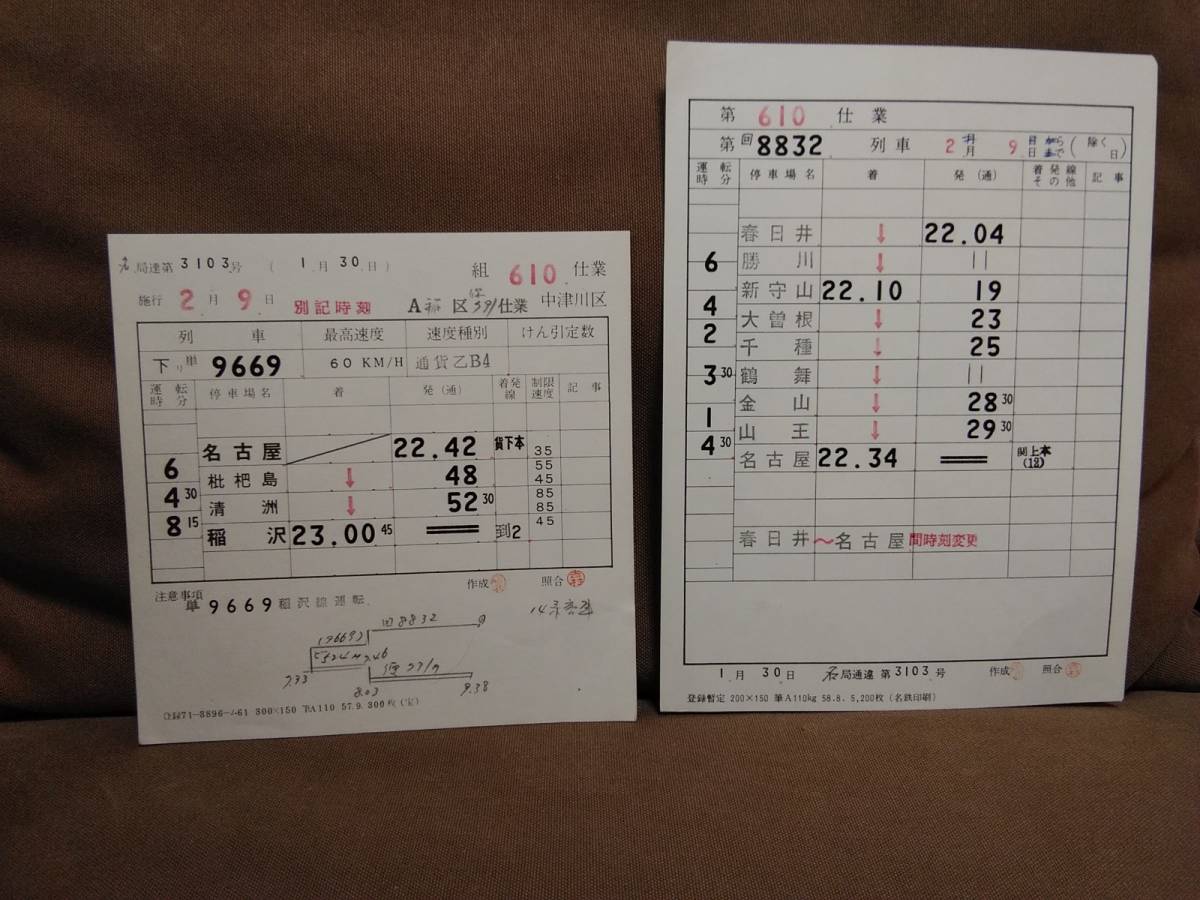 局達第 3103号 ( 1月 30日)
組 610 仕業
施行 2月 9日 別記時刻 A 区 仕業 中津川区
列車 最高速度 速度種別 けん引定数
下り単 9669 60 KM/H 通貨乙B4
運転時分 停車場名 着 発(通) 着発線 制限速度 記事
名古屋 22.42 貨下本
35
6
枇杷島 ↓ 48
55
45
4 30
清洲 ↓ 52 30
85
85
8 15
稲沢 23.00 45 到2
45
作成 照合
注意事項
単9669稲沢線運転
回8832
(9669)
8.03
9.38
登録71-8896-4-61 300×150 下A110 57.9.300枚(宝)
第 610 仕業
第 回8832 列車 2月 9日から (除く 日)
運転時分 停車場名 着 発(通) 着発線その他 記事
春日井 ↓ 22.04
6
勝川 ↓ 11
新守山 22.10 19
4
大曽根 ↓ 23
2
千種 ↓ 25
3 30
鶴舞 ↓ 11
金山 ↓ 28 30
1
山王 ↓ 29 30
4 30
名古屋 22.34 関上本(12)
春日井~名古屋間時刻変更
1月 30日 名局通達 第3103号 作成 照合
登録暫定 200×150 筆A110kg 58.8. 5,200枚 (名鉄印刷)